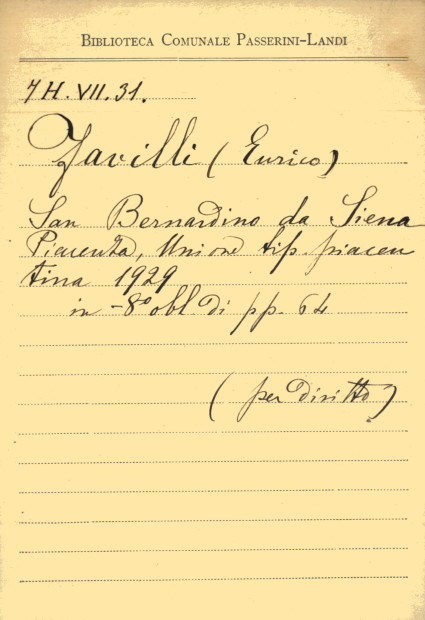 BIBLIOTECA COMUNALE PASSERINI-LANDI
7H.VII.31.
(Enrico)
San Bernardino da Siena
Piacenza, Unione tip. piacen
tina 1929
in-8º obl di pp. 64
(per diritto)